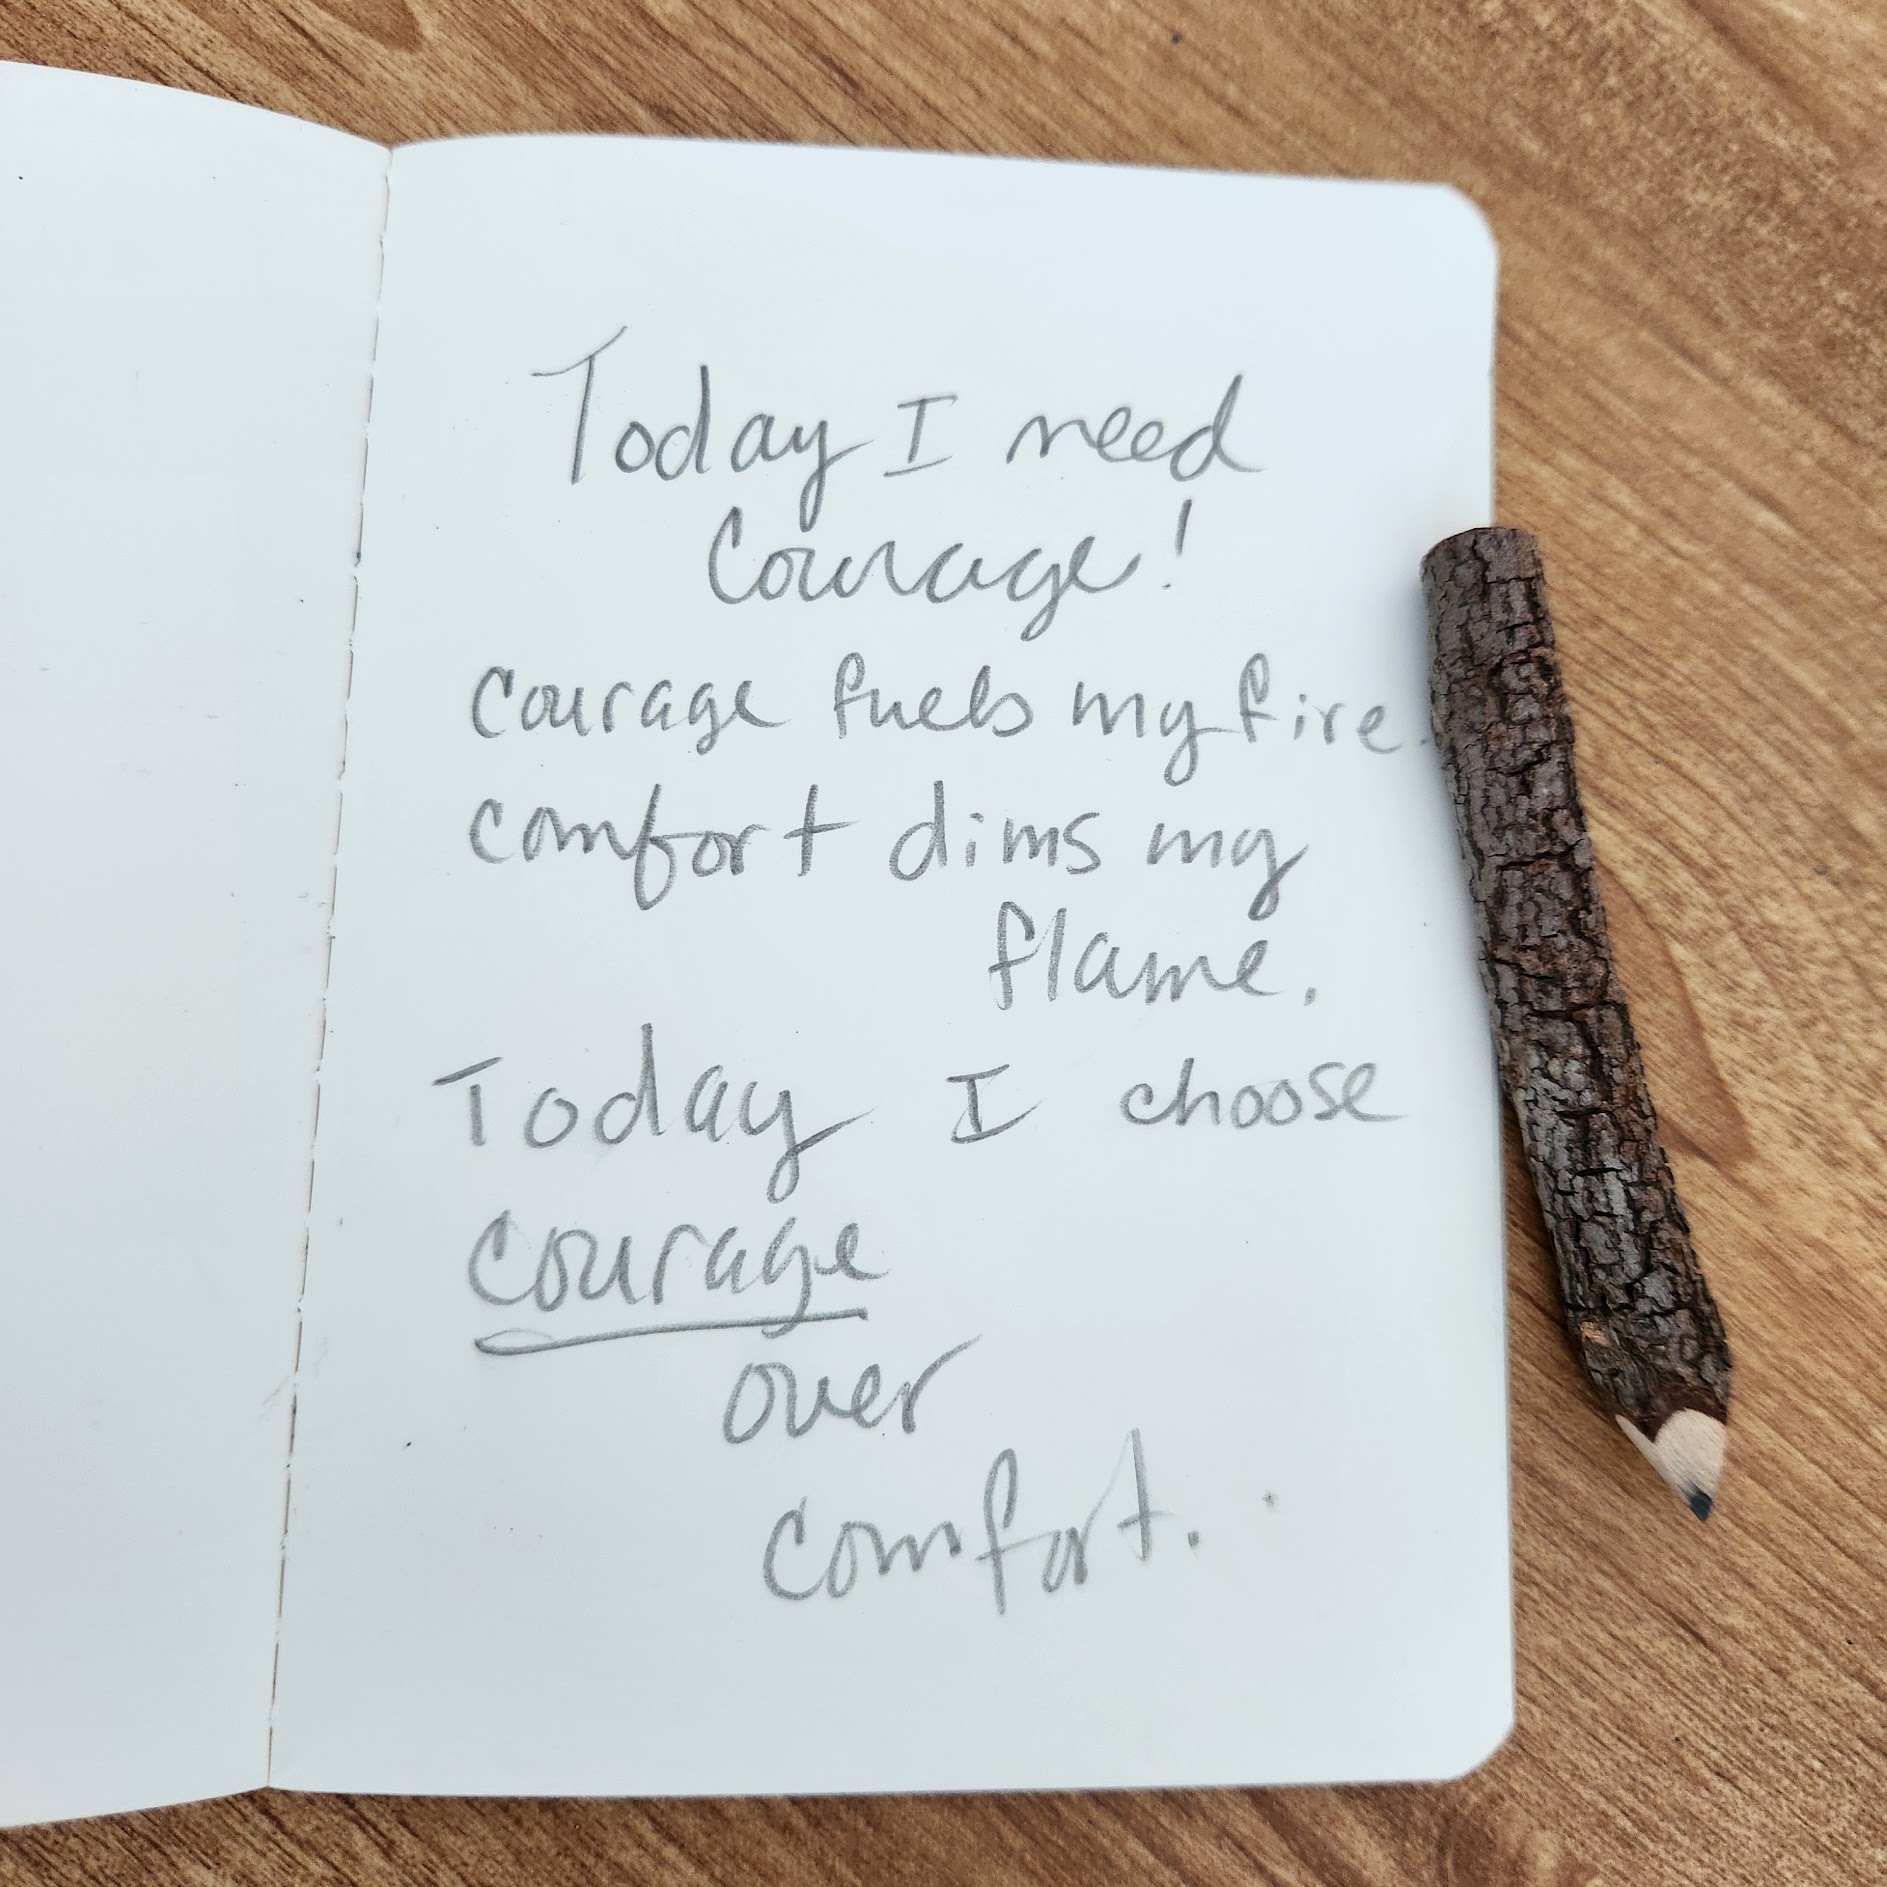 Today I need
Courage!
courage fuels my fire.
comfort dims my
flame.
Today I choose
courage
over
comfort.